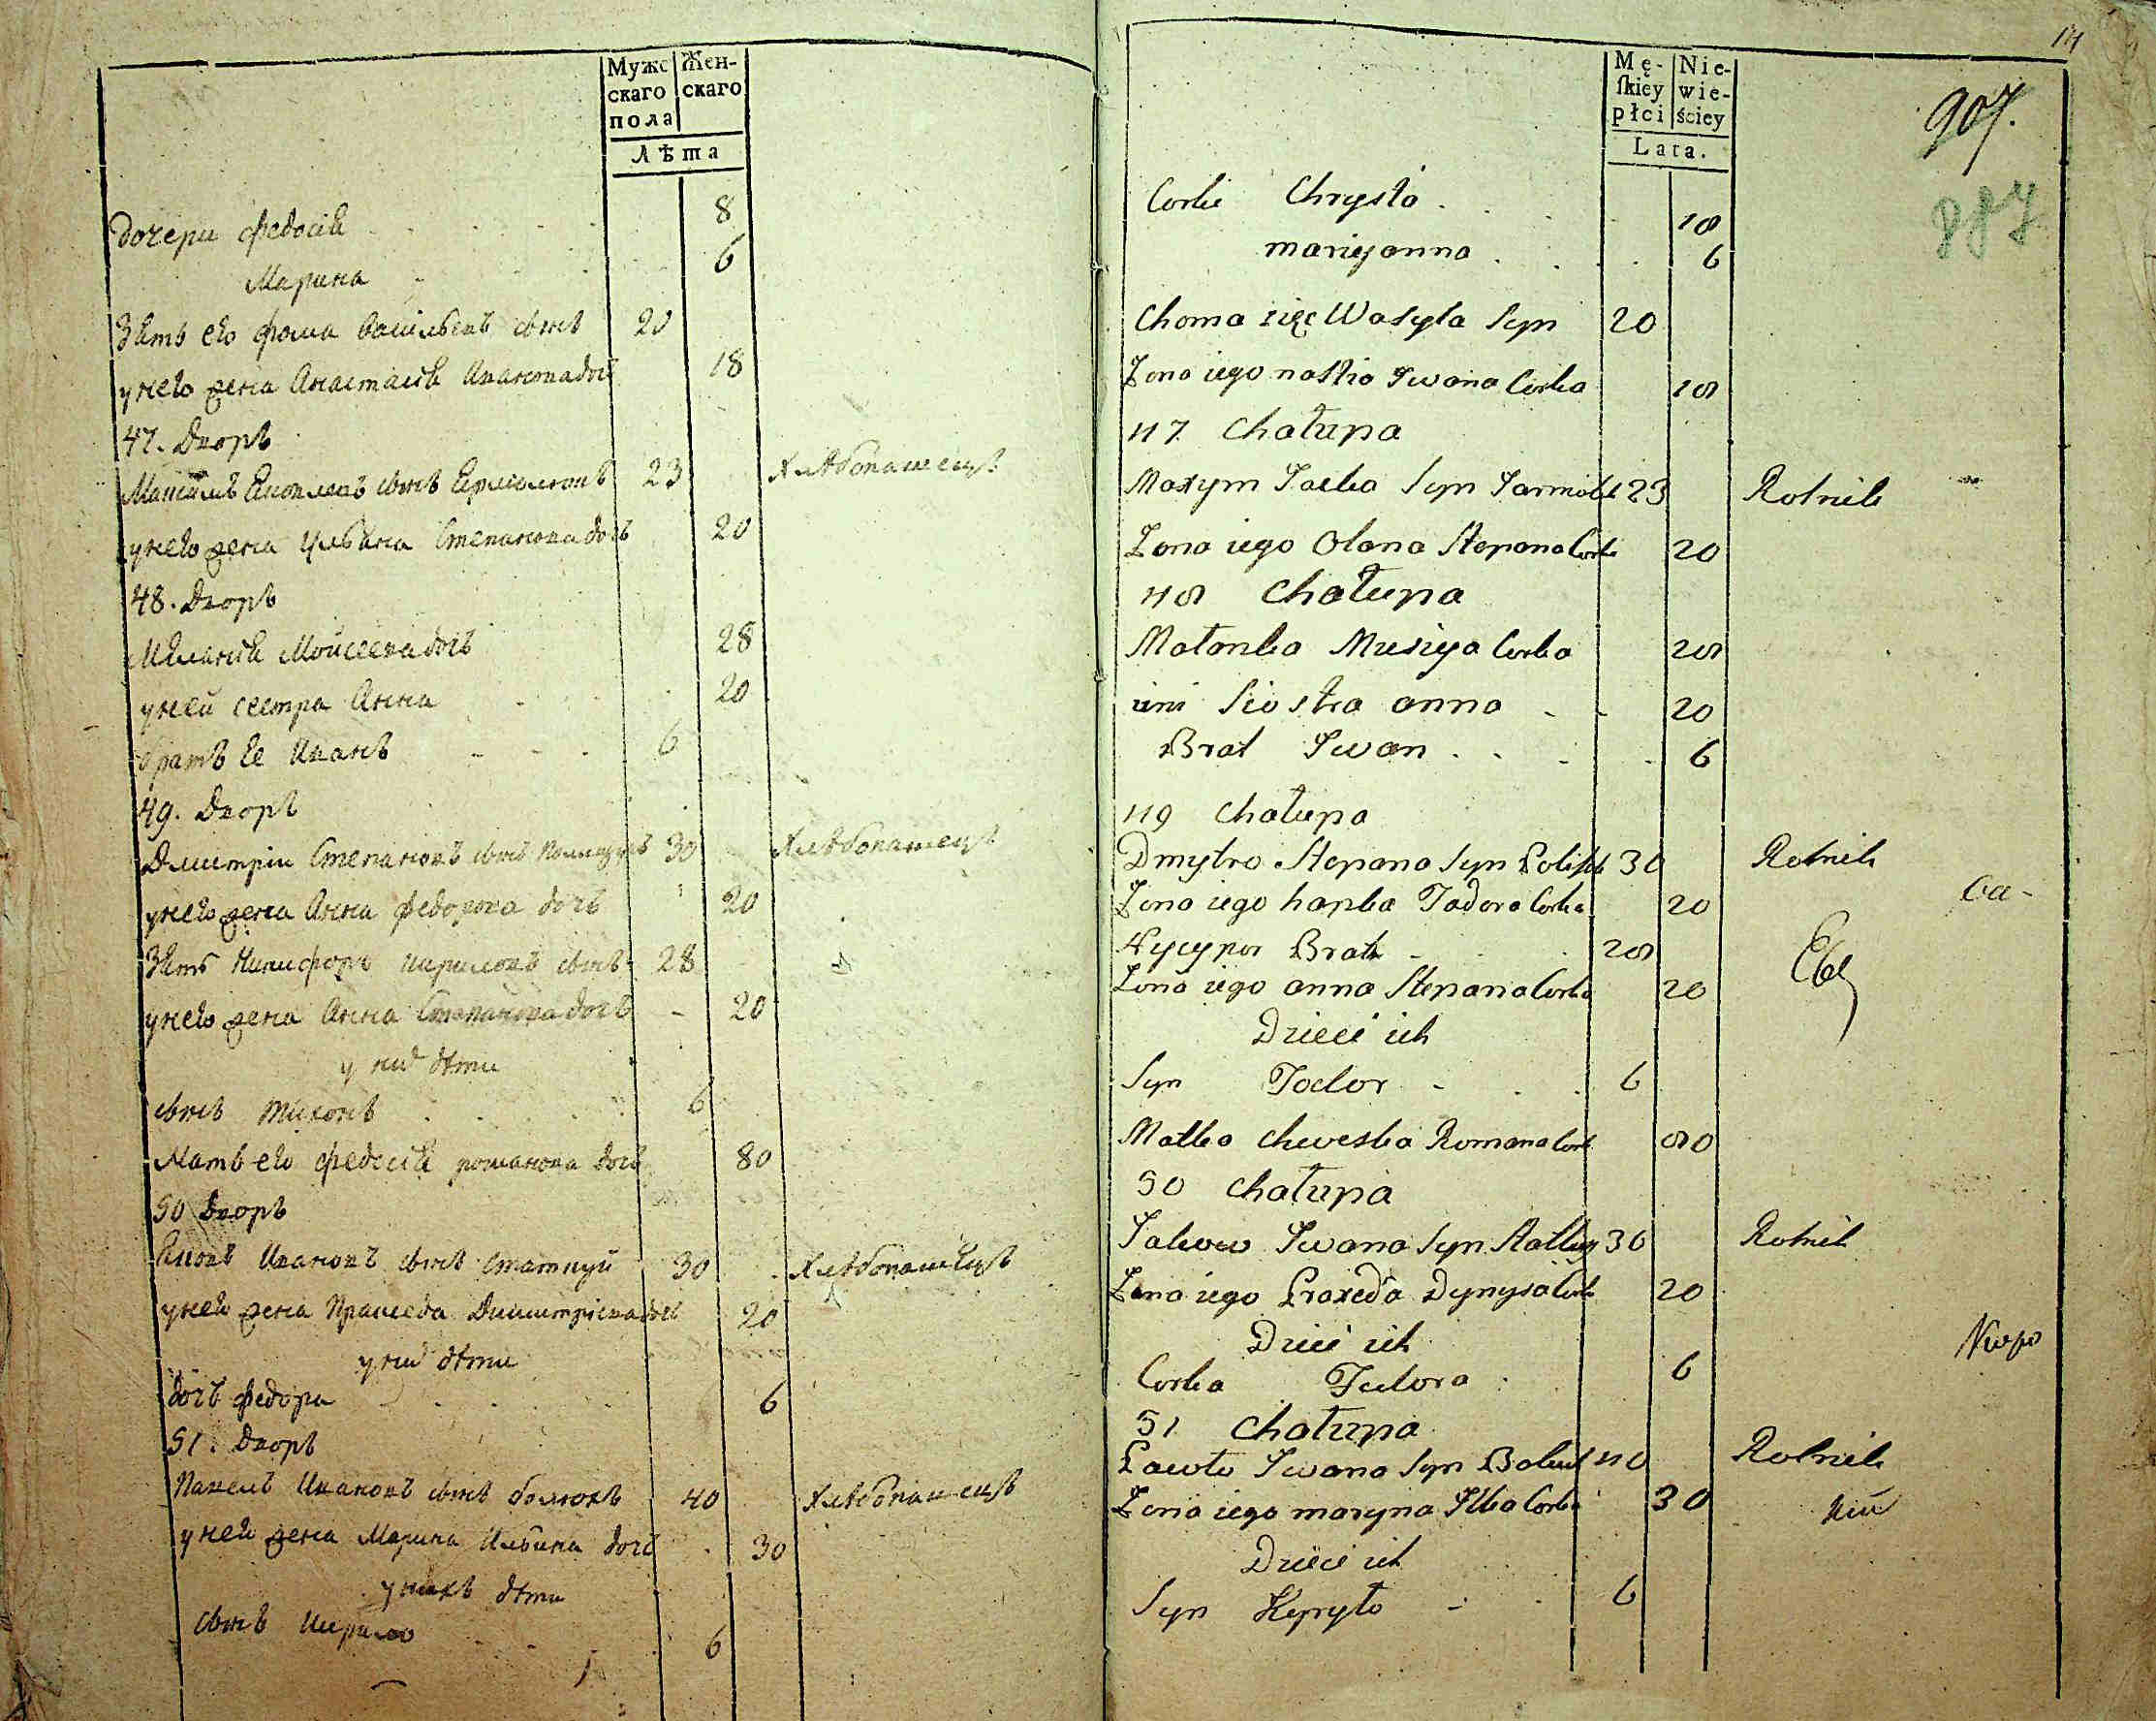 Мужс
скаго
пола
Жен-
скаго
Лѣта
дочери федосіѧ 8
Марина 6
Зѧть его фома васильевъ сынъ 20
у него жена Анастасіѧ Иванова дочь 18
47. Дворъ
Маѯимъ Яковлевъ сынъ 23 Хлѣбопашецъ
у него жена Ульѧна Степанова дочь 20
48. Дворъ
Мѧланіѧ Мойсеева дочь 28
у ней сестра Анна 20
братъ Ее Иванъ 6
49. Дворъ
Дмитріи Степановъ сынъ 30 Хлѣбопашецъ
у него жена Анна федорова дочь 20
Зѧть Никифоръ кириловъ сынъ 28
у него жена Анна Степанова дочь 20
у них дѣти
сынъ тихонъ 6
Мать его федосіѧ романова дочь 80
50 Дворъ
Яковъ Ивановъ сынъ 30 Хлѣбопашецъ
у него жена Праѯеда Димитріева дочь 20
у них дѣти
дочь федора 6
51. Дворъ
Павелъ Ивановъ сынъ 40 Хлѣбопашецъ
у него жена Марина Ильина дочь 30
у нихъ дѣти
сынъ Кирило 6
Mę-
ſkiey
płci
Nie-
wie-
ściey
Lata.
907.
887
Corki Chrysta 18
mariyanna 6
Choma zięc Wasyla Syn 20
Zona iego nastia Iwana Corka 18
47 Chałupa
Maxym Jacka Syn 23 Rolnik
Zona iego Olana Stepana Corka 20
48 Chałupa
Małanka Musiya Corka 28
Siostra anna 20
Brat Iwan 6
49 Chałupa
Dmytro Stepana Syn 30 Rolnik
Zona iego hapka Todora Corka 20
Nycypor Brat 28
Zona iego anna Stepana Corka 20
Dzieci ich
Syn Todor 6
Matka chweska Romana Cork 80
50 Chałupa
Jakow Iwana Syn 30 Rolnik
Zona iego Praxeda Dynysa Cork 20
Dzieci ich
Corka Todora 6
51 Chałupa
Pawło Iwana Syn 40 Rolnik
Zona iego maryna Ilka Corka 30
Dzieci ich
Syn Kyryło 6